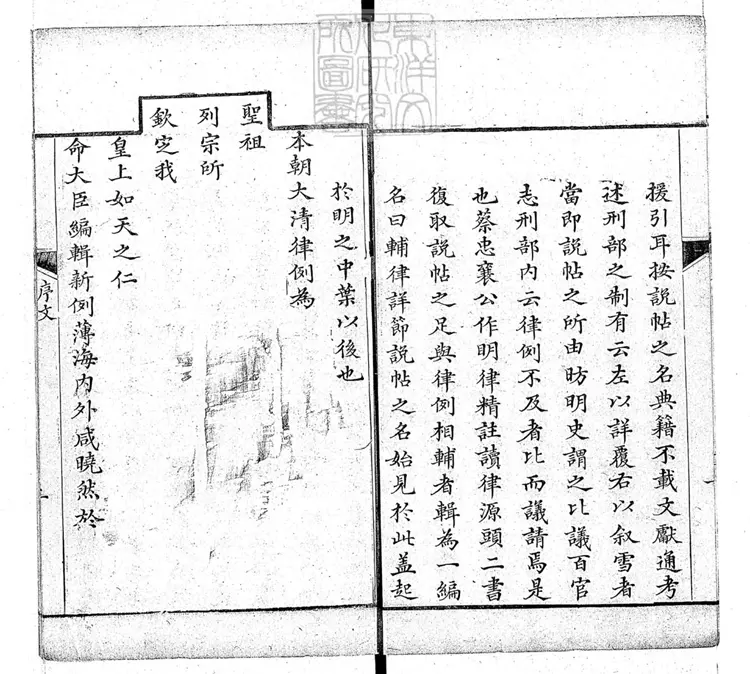 援引耳按說帖之名典籍不載文獻通考
述刑部之制有云左以詳覆右以叙雪者
當即說帖之所由昉明史謂之比議百官
志刑部內云律例不及者比而議請焉是
也蔡忠襄公作明律精註讀律源頭二書
復取說帖之足與律例相輔者輯為一編
名曰輔律詳節說帖之名始見於此蓋起
於明之中葉以後也
本朝大清律例為
聖祖
列宗所
欽定我
皇上如天之仁
命大臣編輯新例薄海內外咸曉然於
序文